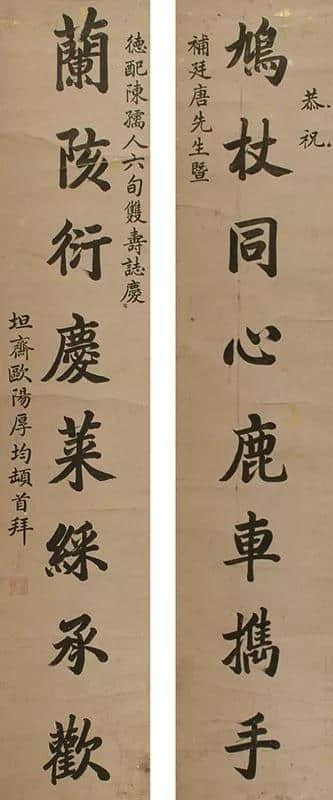 恭祝
鳩杖同心鹿車擕手
補廷唐先生暨
德配陳孺人六旬雙壽誌慶
蘭陔衍慶萊綵承歡
坦齋歐陽厚均頓首拜